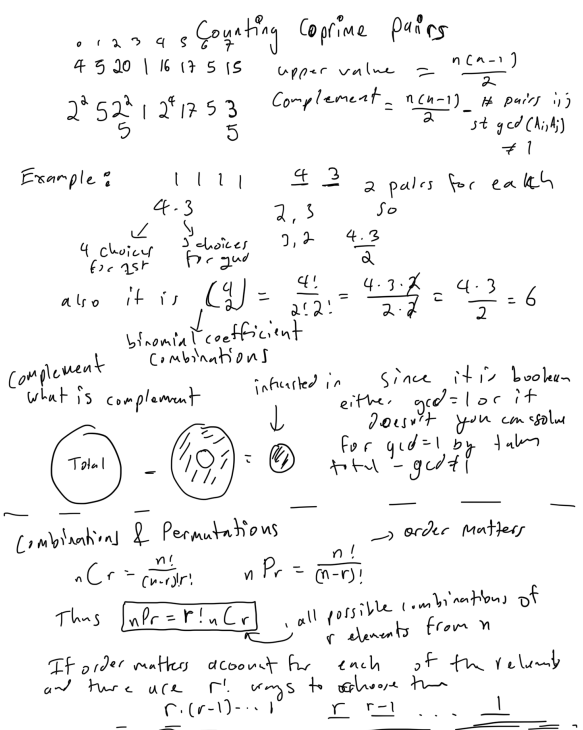 Counting Coprime Pairs
0 1 2 3 4 5 6 7
4 5 20 1 16 17 5 15
upper value = n(n-1)/2
2² 5 2² 5 1 2⁴ 17 5 3 5
Complement = n(n-1)/2 - # pairs i,j
st gcd(Ai,Aj)
≠ 1
Example: 1 1 1 1 4 3 2 pairs for each
4·3 2, 3 so
4 choices for 1st 3 choices for 2nd 3, 2 4·3/2
also it is (4 2) = 4!/2!2! = 4·3·2/2·2 = 4·3/2 = 6
binomial coefficient
combinations
Complement
what is complement
intrusted in
since it is boolean
either gcd=1 or it
doesn't you can solve
for gcd=1 by taken
total - gcd≠1
Total - =
Combinations & Permutations
→ order matters
nCr = n!/(n-r)!r! nPr = n!/(n-r)!
Thus nPr = r! nCr
all possible combinations of
r elements from n
If order matters account for each of the r elements
and there are r! ways to choose them
r·(r-1)···1 r r-1 ... 1